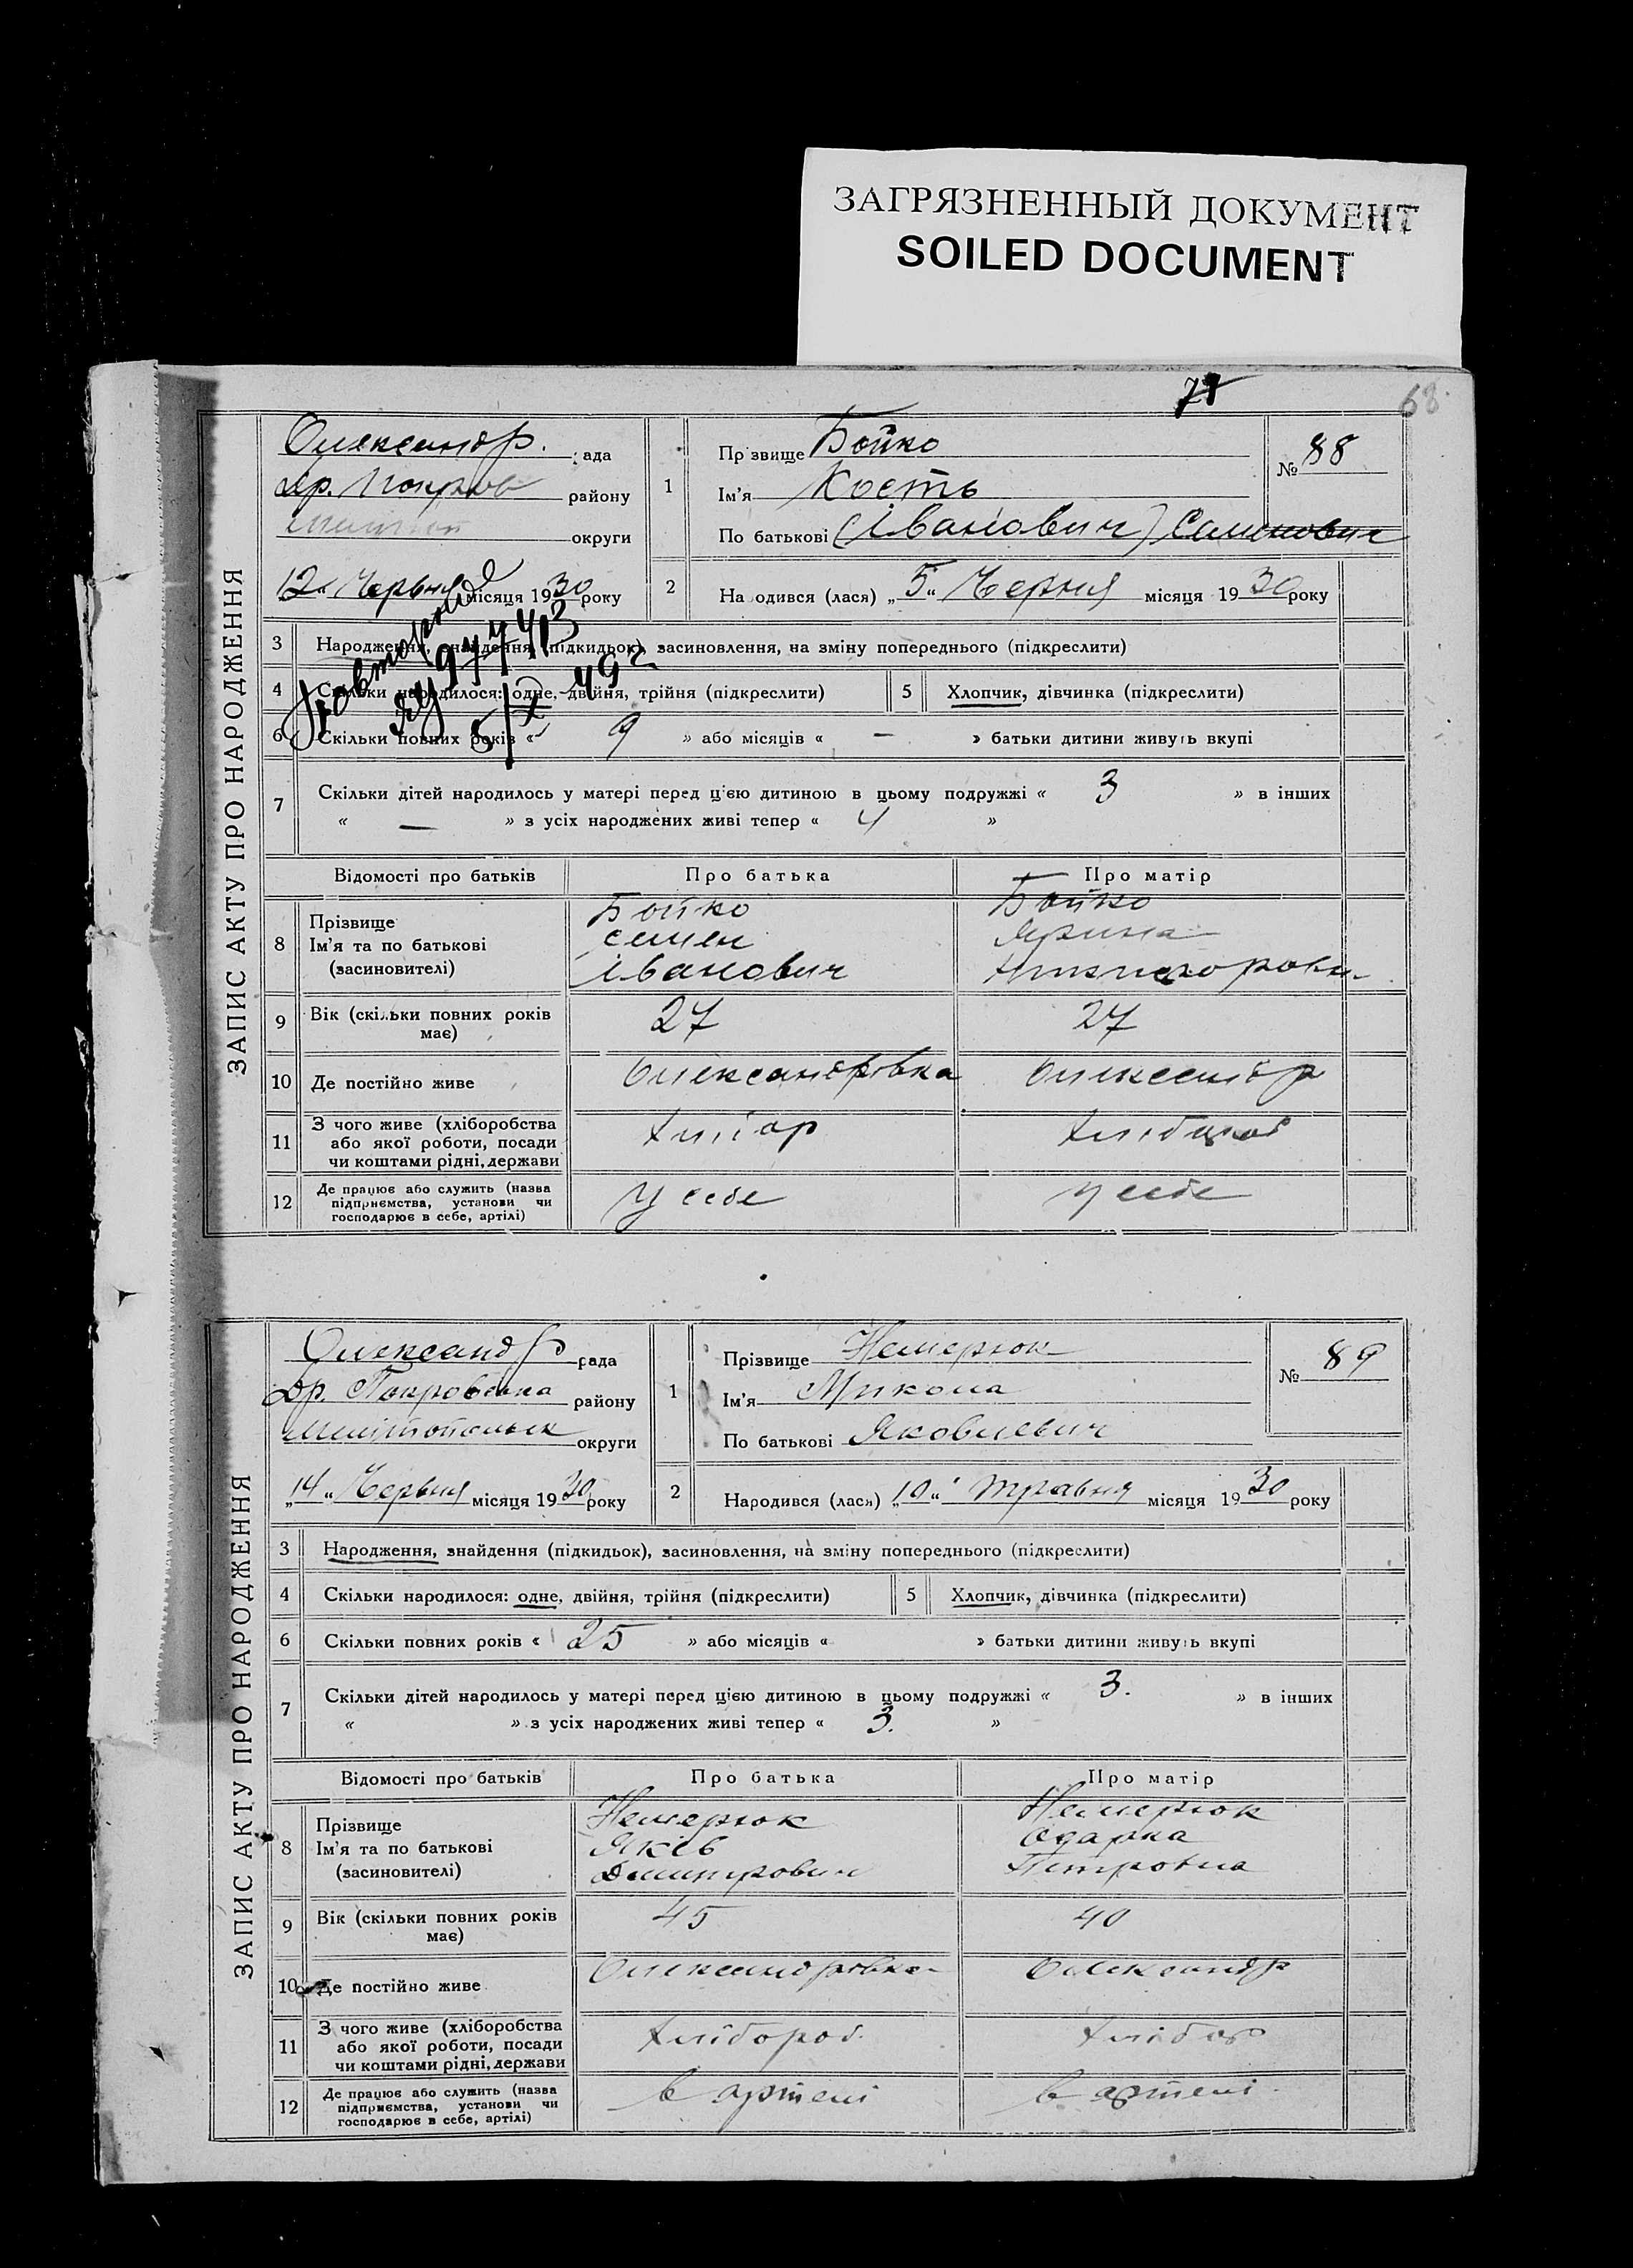 ЗАГРЯЗНЕННЫЙ ДОКУМЕНТ
SOILED DOCUMENT
68
ЗАПИС АКТУ ПРО НАРОДЖЕННЯ
Олександр. рада
др. Покров району
округи
"12" Червня місяця 1930 року
1 Прізвище Бойко
Ім'я Кость
По батькові (Іванович) Семенович
№ 88
2 Народився (лася) „5“ Черня місяця 1930 року
Повторне
5/X 49 г
3 Народження, знайдення (підкидьок), засиновлення, на зміну попереднього (підкреслити)
4 Скільки народилося: одне, двійня, трійня (підкреслити) 5 Хлопчик, дівчинка (підкреслити)
6 Скільки повних років « 9 » або місяців « — » батьки дитини живуть вкупі
7 Скільки дітей народилось у матері перед цією дитиною в цьому подружжі « 3 » в інших
« — » з усіх народжених живі тепер « 4 »
Відомості про батьків Про батька Про матір
8 Прізвище Бойко Бойко
Ім'я та по батькові Семен Ярина
(засновителі) Іванович
9 Вік (скільки повних років має) 27 27
10 Де постійно живе Олександрівка Олександр
11 З чого живе (хліборобства
або якої роботи, посади
чи коштами рідні, держави
12 Де працює або служить (назва
підприємства, установи чи
господарює в себе, артілі) У себе у себе
ЗАПИС АКТУ ПРО НАРОДЖЕННЯ
Олександр рада
др. Покровська району
Мелітопольськ округи
„14“ Червня місяця 1930 року
1 Прізвище Немерюк
Ім'я Микола
По батькові Яковлевич
№ 89
2 Народився (лася) „10“ травня місяця 1930 року
3 Народження, знайдення (підкидьок), засиновлення, на зміну попереднього (підкреслити)
4 Скільки народилося: одне, двійня, трійня (підкреслити) 5 Хлопчик, дівчинка (підкреслити)
6 Скільки повних років « 25 » або місяців « » батьки дитини живуть вкупі
7 Скільки дітей народилось у матері перед цією дитиною в цьому подружжі « 3. » в інших
« » з усіх народжених живі тепер « 3. »
Відомості про батьків Про батька Про матір
8 Прізвище Немерюк Немерюк
Ім'я та по батькові Яків Одарка
(засиновителі) Дмитрович Петровна
9 Вік (скільки повних років має) 45 40
10 Де постійно живе Олександровка Олександр
11 З чого живе (хліборобства
або якої роботи, посади
чи коштами рідні, держави Хлібороб Хлібор
12 Де працює або служить (назва
підприємства, установи чи
господарює в себе, артілі) в артелі в артелі